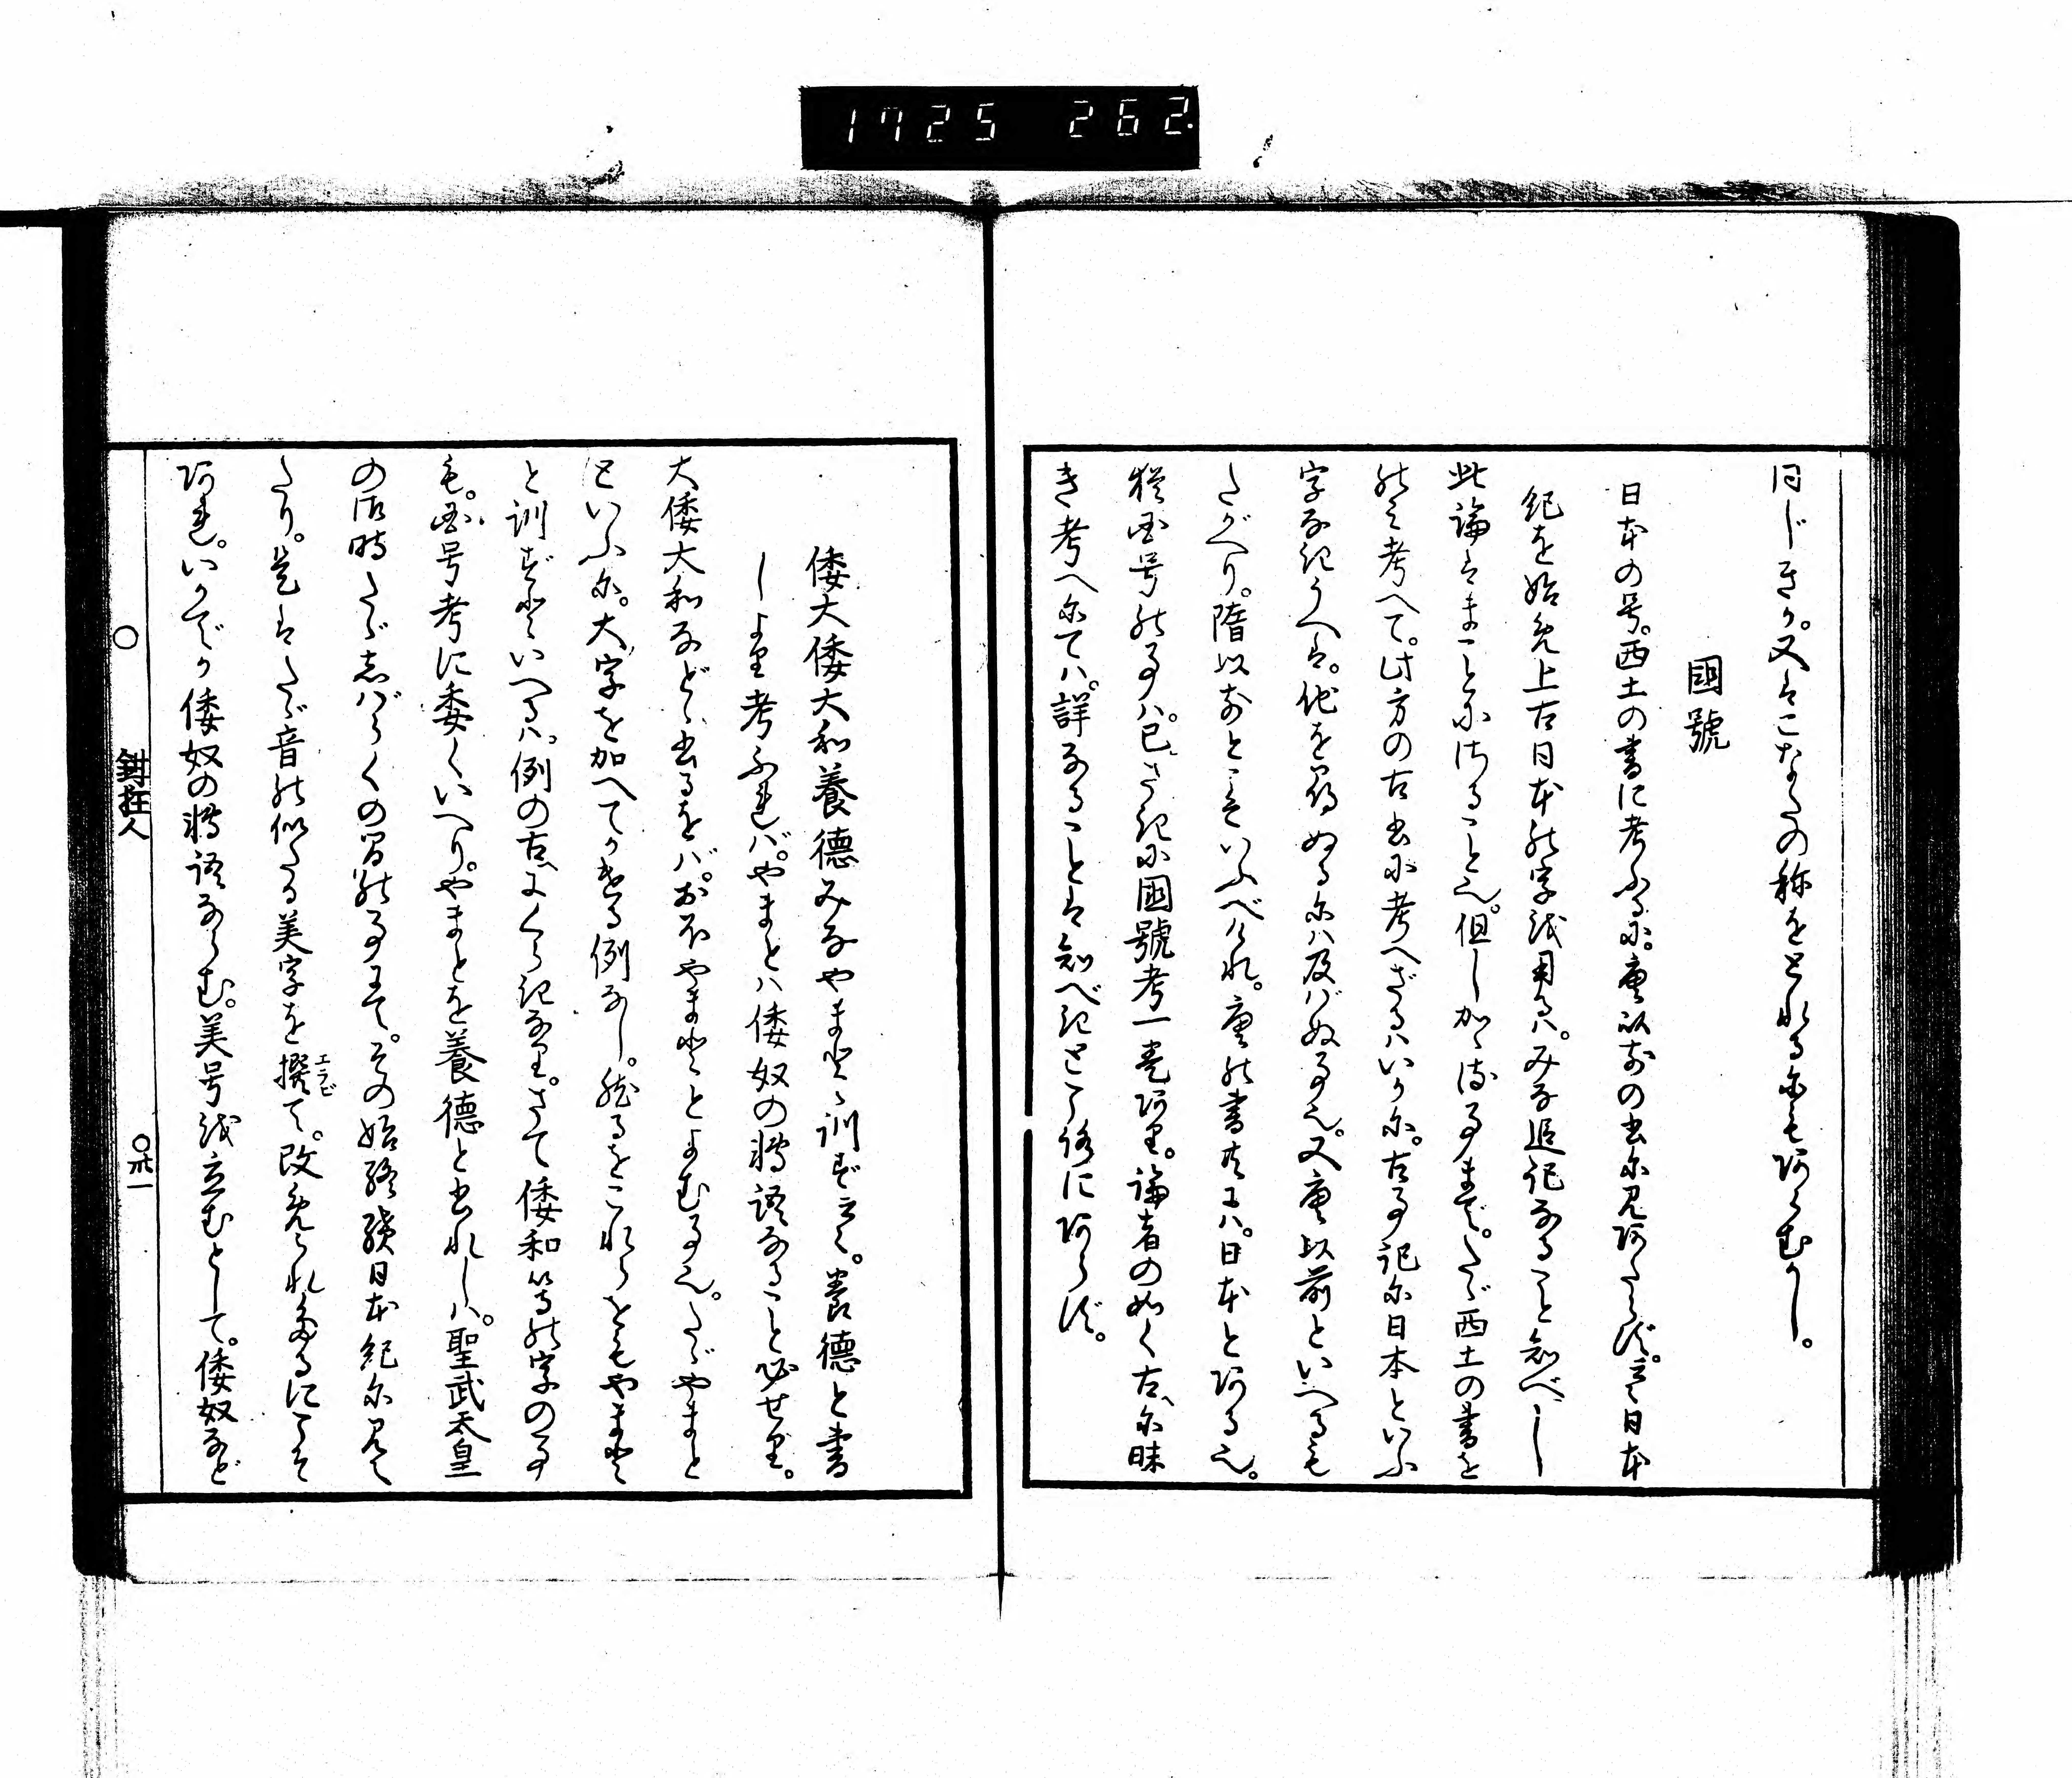 1725 262.
同じきか。又はこなたの称をとれるにもあらむかし。
國號
日本の号。西土の書に考ふるに。唐以前の書に見あたらず。云々日本
紀を始め上古日本の字を用るハ。みな追記なること知べし
此論はまことにさること也。但しかくさる事まで。たゞ西土の書を
のみ考へて。此方の古書に考へざるハいかに。古事記に日本といふ
字なきうへは。他を尋ぬるにハ及バぬ事也。又唐以前といへるも
たがへり。隋以前とこそいふべけれ。唐の書共にハ。日本とある也。
猶国号の事ハ。已さきに國號考一巻あり。論者の如く古に昧
き考へにてハ。詳なることは知べきところにあらず。
倭大倭大和養德みなやまとゝ訓ず云々。養德と書
しより考ふれバ。やまとハ倭奴の轉語なること必せり。
大倭大和などゝ書るをバ。おほやまとゝよむ事也。たゞやまと
といふに。大字を加へてかける例なし。然るをこれらをもやまと
と訓ずといへるハ。例の古にくらきなり。さて倭和等の字の事
も。国号考に委くいへり。やまとを養德と書れしハ。聖武天皇
の御時たゞしばらくの間の事にて。その始終續日本紀に見え
たり。是はたゞ音の似たる美字を撰エラビて。改められたるにこそ
あれ。いかでか倭奴の轉語ならむ。美号を立むとして。倭奴など
○ 鉗狂人 ○卅一